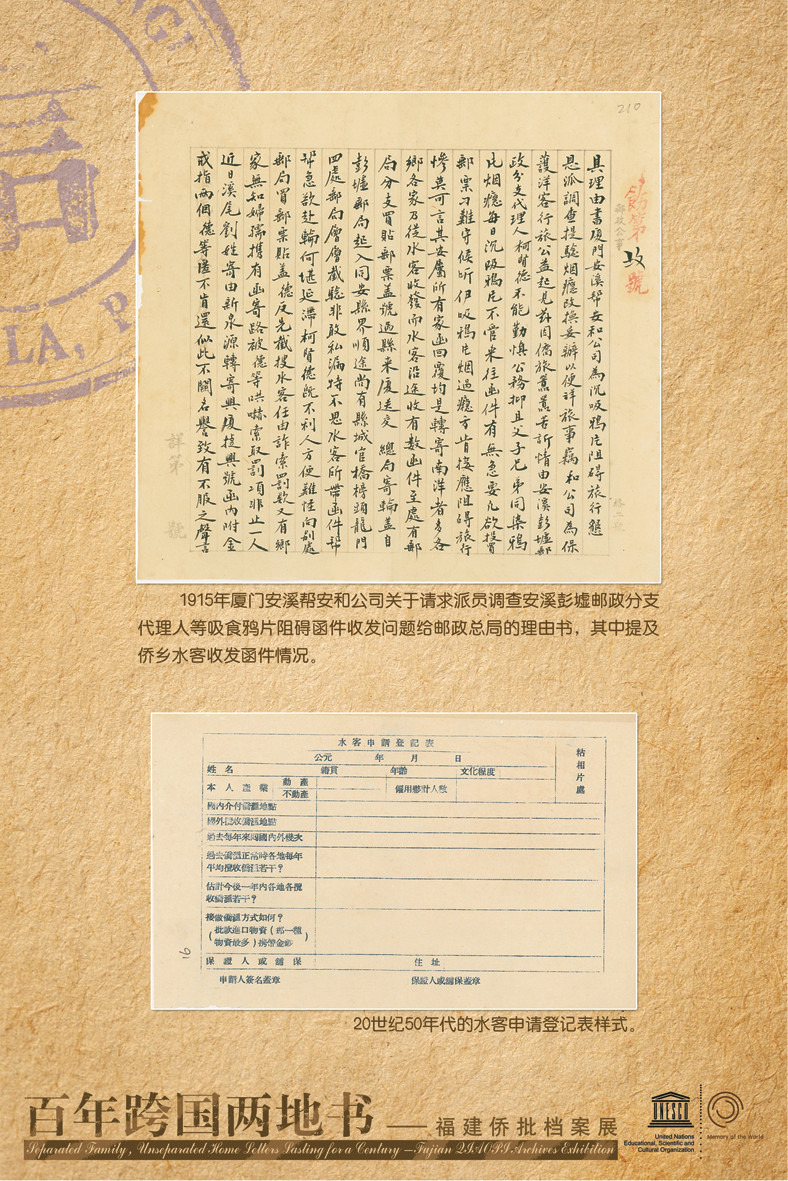 210
具理由書廈門安溪幫安和公司為沉吸鴉片阻碍旅行懇
恩派調查提驗烟癮改換妥辦以便詳旅事竊和公司為保
護洋客行旅公益起見茲因僑旅薰薰苦訴情由安溪彭墟郵
政分支代理人柯賢德不能勤慎公務抑且父子兄弟同染鴉
片烟癮每日沉吸鴉片不管來往函件有無急要凡欲投買
郵票刁難守候听伊吸鴉片烟過癮方肯接應阻碍旅行
慘莫可言其安屬所有家函回覆均是轉寄南洋者多各
鄉各家乃從水客收發而水客沿途收有數函件至處有郵
局分支買貼郵票盖號過縣來廈送交 總局寄輪盖自
彭墟郵局起入同安縣界順途尚有縣城官橋龍門
四處郵局層層截驗非敢私漏特不思水客所帶函件幫
幫急欲赴輪何堪延滯柯賢德既不利人方便難怪向別處
郵局買郵票貼盖德反先截搜水客任由詐索罰欵又有鄉
家無知婦孺携有函寄路被德等哄嚇索取罰項非止一人
近日溪尾劉姓寄由新泉源轉寄興廈捷興號函內附金
戒指兩個德等匿不肯還似此不關名譽致有不服之聲言
1915年厦门安溪帮安和公司关于请求派员调查安溪彭墟邮政分支
代理人等吸食鸦片阻碍函件收发问题给邮政总局的理由书，其中提及
侨乡水客收发函件情况。
水客申請登記表
公元 年 月 日
粘相片處
姓名 籍貫 年齡 文化程度
本人產業 動產 不動產 僱用夥計人數
國內介付僑匯地點
國外認收僑匯地點
過去每年來回國內外幾次
過去僑匯正常時各地每年
平均攬收僑匯若干？
估計今後一年內各地各攬
收僑匯若干？
接做僑匯方式如何？
（批款進口物資（那一種
物資最多）携帶金鈔）
保證人或舖保 住址
申請人簽名蓋章 保證人或舖保蓋章
16
20世纪50年代的水客申请登记表样式。
百年跨国两地书——福建侨批档案展
Separated Family, Unseparated Home Letters Lasting for a Century —Fujian QIAOPI Archives Exhibition
UNESCO
United Nations
Educational, Scientific and
Cultural Organization
Memory of the World